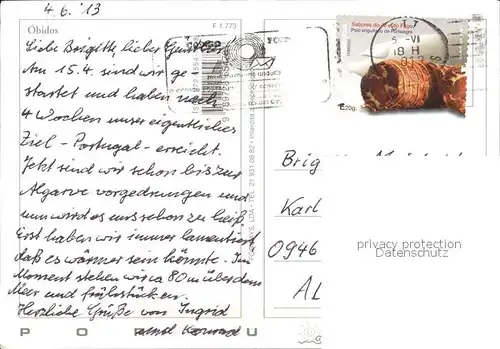 4.6.'13
Óbidos
F 1.773
Liebe Brigitte, lieber Gunther!
Am 15.4. sind wir ge-
startet und haben nach
4 Wochen unser eigentliches
Ziel - Portugal - erreicht.
Jetzt sind wir schon bis zur
Algarve vorgedrungen und
nun wird es uns schon zu heiß.
Erst haben wir immer lamentiert,
daß es wärmer sein könnte. Im
Moment stehen wir ca 80 m über dem
Meer und frühstücken.
Herzliche Grüße von Ingrid
und Konrad
Sabores do Ar e do Fogo
Paio enguitado de Portalegre
E20g
5 VI
18 H
Karl
0946
AL
privacy protection
Datenschutz
P O R U